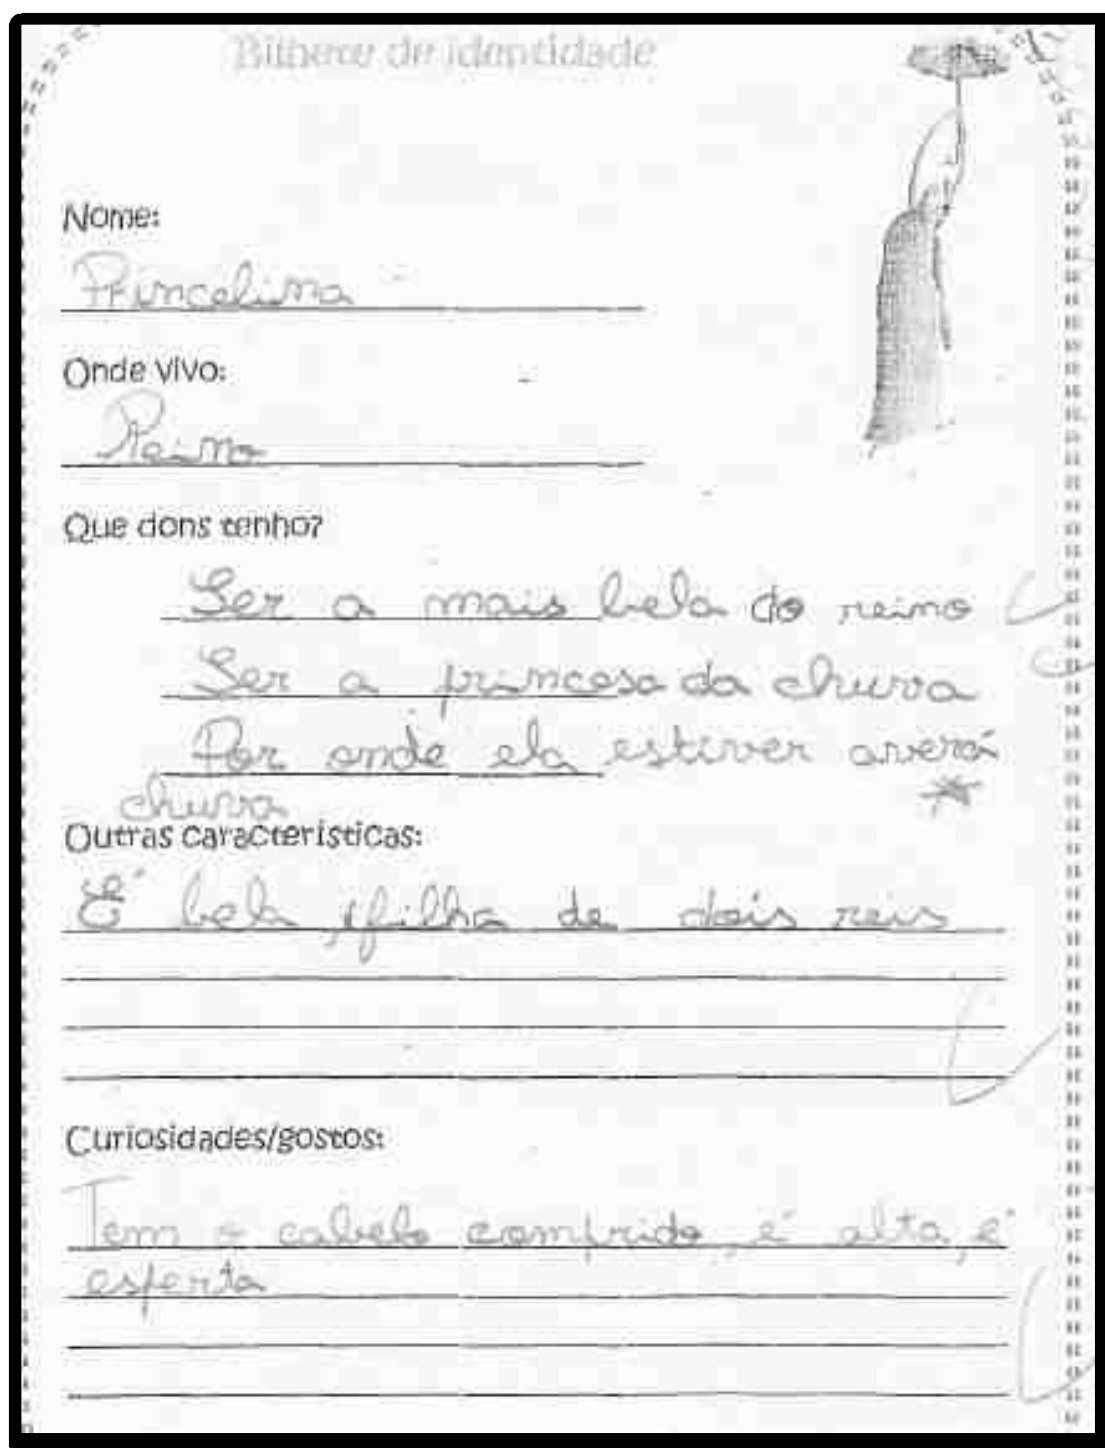 Bilhete de identidade
Nome:
Princelina
Onde vivo:
Reino
Que dons tenho?
Ser a mais bela do reino
Ser a princesa da chuva
Por onde ela estiver averá
chuva
Outras características:
É bela, filha de dois reis
Curiosidades/gostos:
Tem o cabelo comprido, é alta, é
esperta